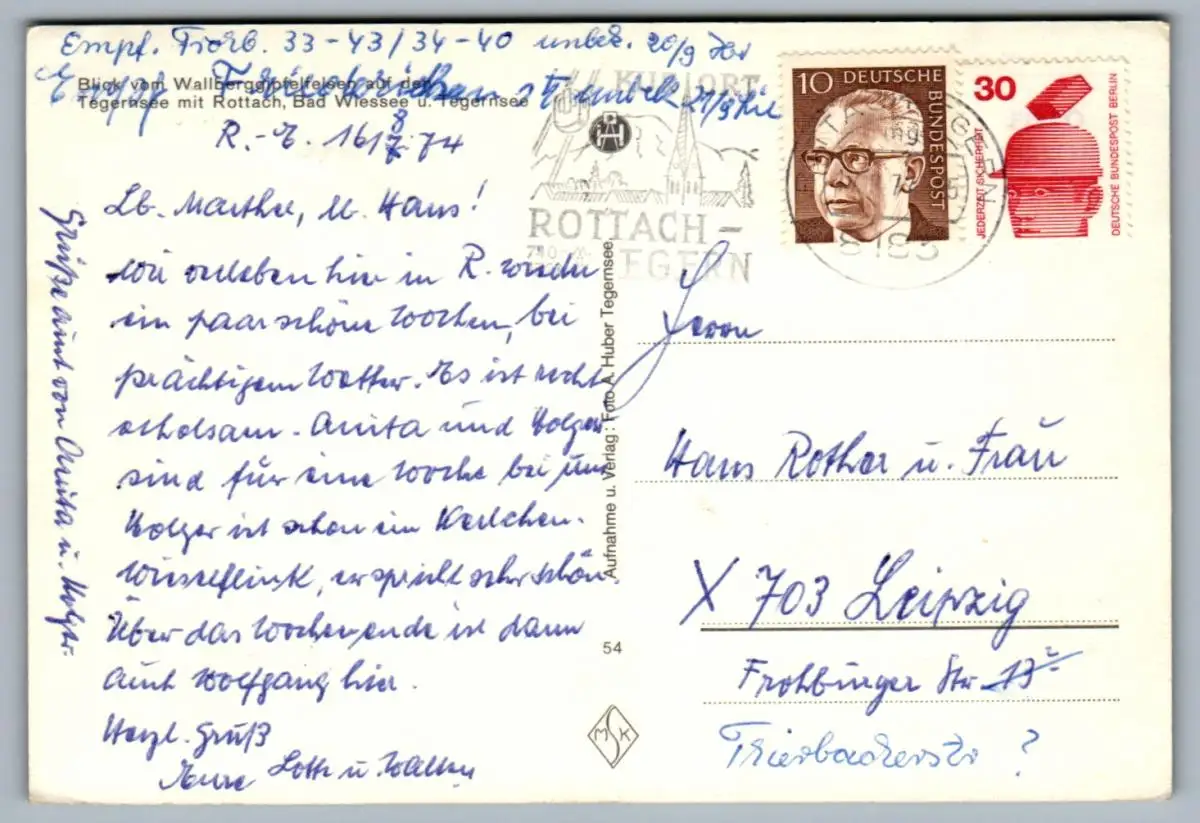 Empf. 33-43/34-40 unbek. 20/9
Blick vom Wallberggipfelfelsen auf den
Tegernsee mit Rottach, Bad Wiessee u. Tegernsee
Empf.
R.-E. 16/8 74
Lb. Martha, lb. Hans!
Wir verleben hier in R. wieder
ein paar schöne Wochen, bei
prächtigem Wetter. Es ist recht
erholsam. Anita und Holger
sind für eine Woche bei uns
Holger ist schon ein Kerlchen.
Wieselflink, er spricht sehr schön.
Über das Wochenende ist dann
auch Wolfgang hier.
Herzl. Gruß
Eure Lotte u. Walter
Grüße auch von Anita u. Holger.
KURORT
ROTTACH-
EGERN
10 DEUTSCHE
BUNDESPOST
30
JEDERZEIT SICHERHEIT
DEUTSCHE BUNDESPOST BERLIN
8183
Aufnahme u. Verlag: Foto A. Huber Tegernsee
54
MSK
Herrn
Hans Rother u. Frau
X 703 Leipzig
Frohburger Str. 13
Trierbacherstr ?